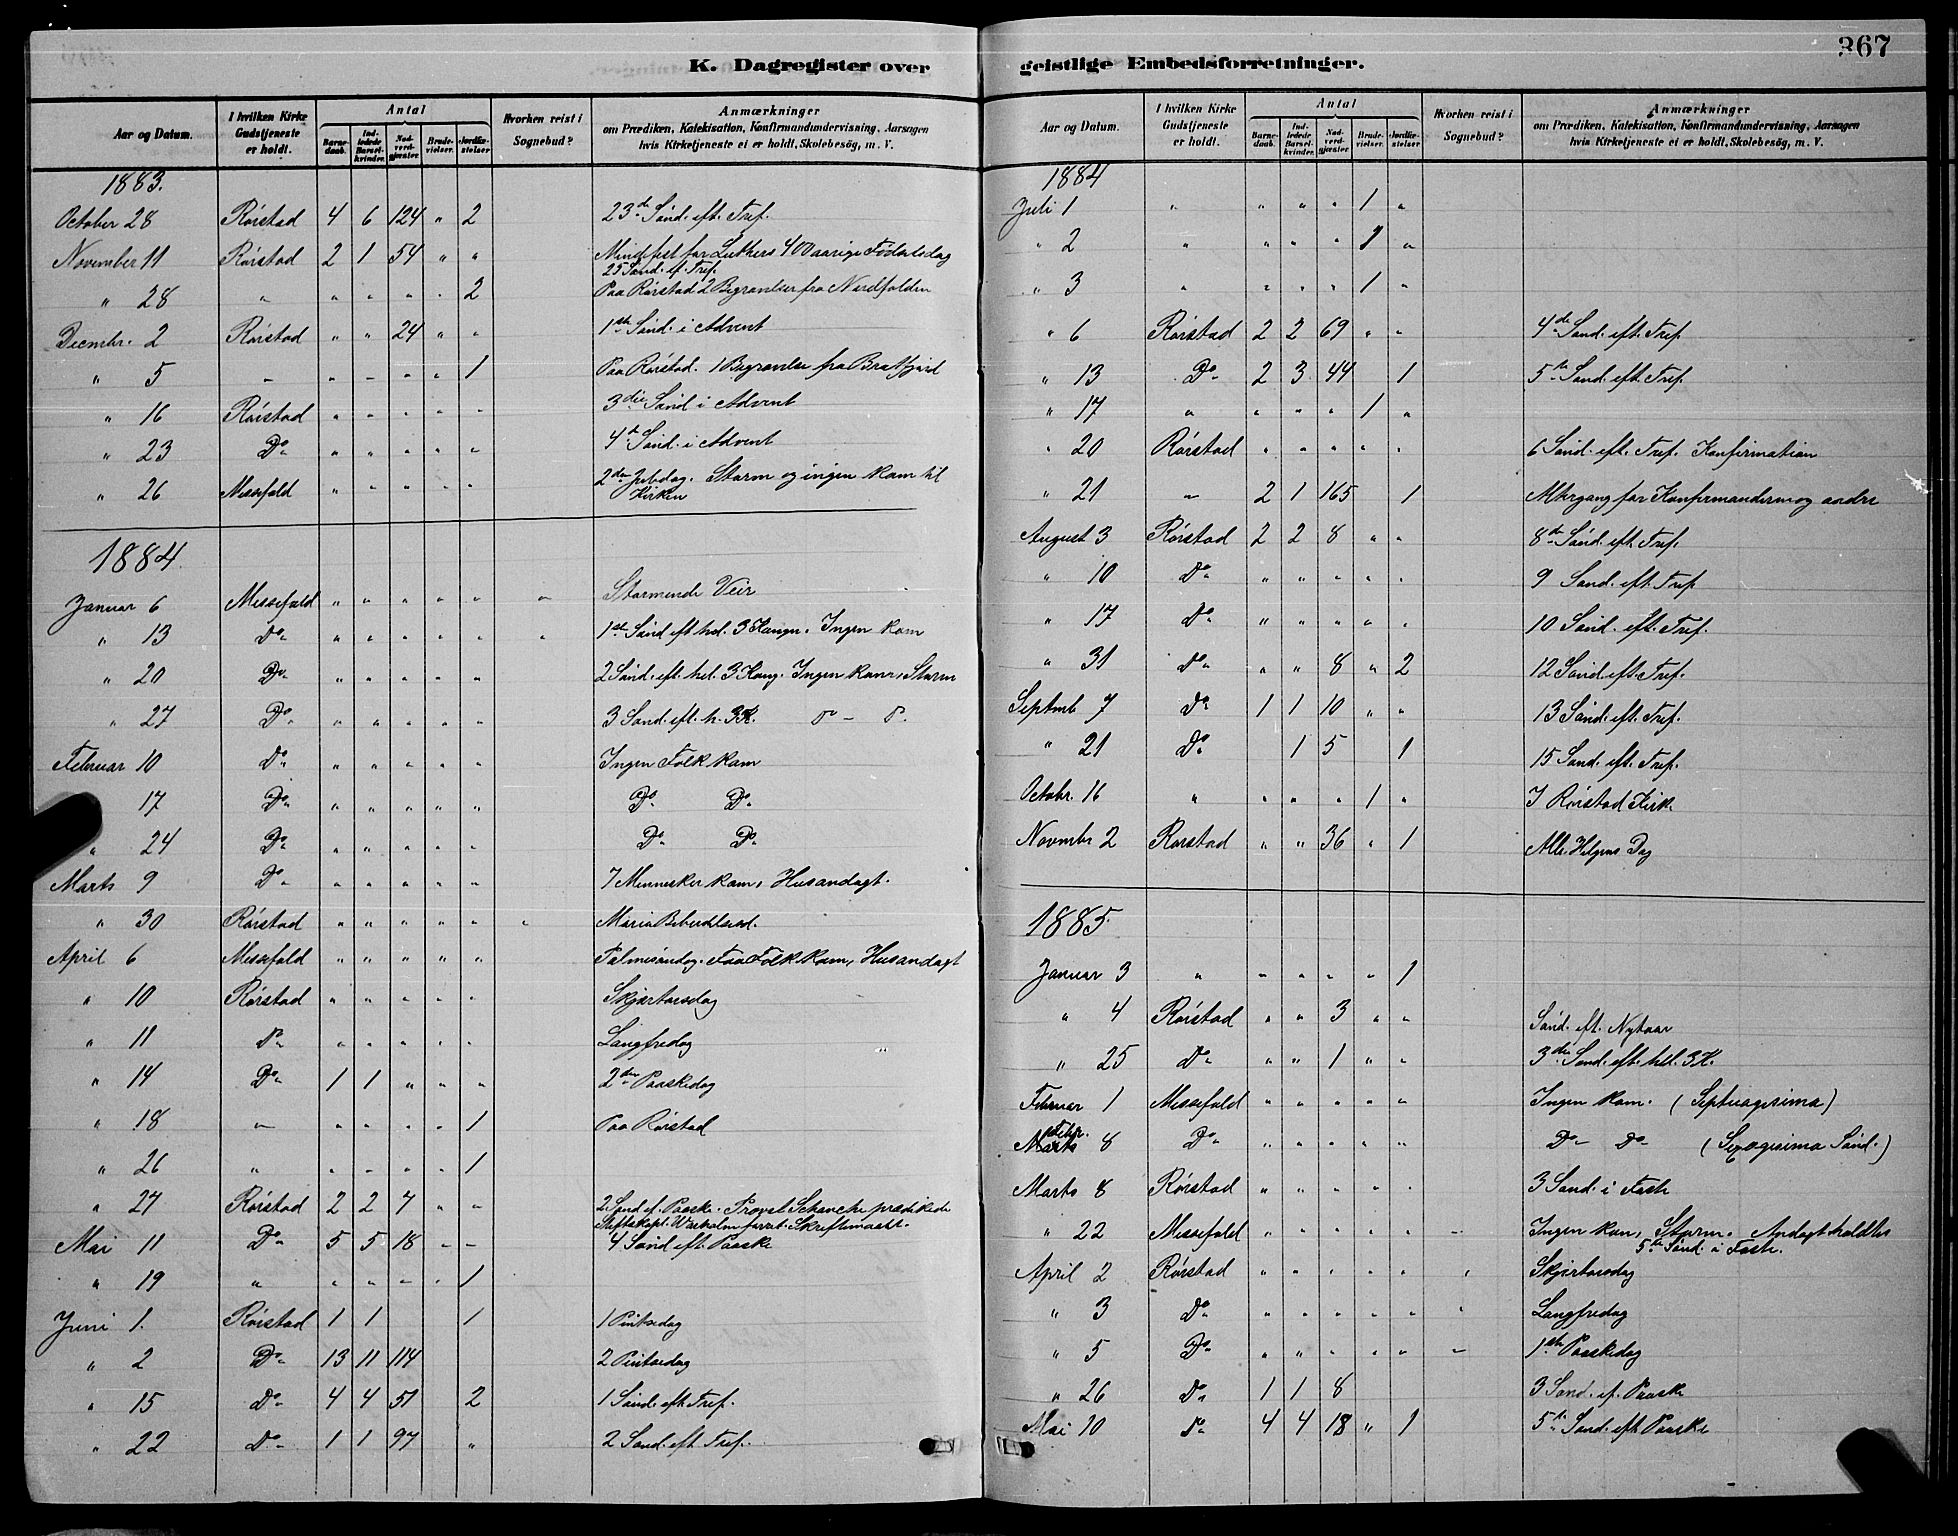 367
K. Dagregister over
Aar og Datum. I hvilken Kirke Gudstjeneste er holdt. Antal Barne-daab. Ind-ledede Barsel-kvinder. Nad-verd-gjæster. Brude-vielser. Jordfæ-stelser Hvorhen reist i Sognebud? Anmærkninger om Prædiken, Katekisation, Konfirmandundervisning, Aarsagen hvis Kirketjeneste ei er holdt, Skolebesög, m. V.
1883.
October 28 Rørstad 4 6 124 " 2 23de Sønd. eft. Tref.
November 11 Rørstad 2 1 54 " " Mindefest for Luthers 400 aarige Fødselsdag
25 Sønd. ef. Tref.
" 28 " " " " " 2 Paa Rørstad 2 Begravelser fra Nordfolden
Decembr. 2 Rørstad " " 24 " " 1ste Sønd. i Advent
" 5 " " " " " 1 Paa Rørstad. 1 Begravelse fra
" 16 Rørstad " " " " " 3die Sønd i Advent
" 23 Do " " " " " 4de Sønd. i Advent
" 26 Messefold " " " " " 2den Juledag. Storm og ingen kom til
Kirken
1884.
Januar 6 Messefold " " " " " " Stormende Veir
" 13 Do " " " " " " 1ste Sønd eft hel. 3 Konger. Ingen kom
" 20 Do " " " " " 2 Sønd. eft. hel. 3 Kong. Ingen kom, Storm
" 27 Do " " " " " 3 Sønd. eft. h. 3 K. Do - Do
Februar 10 Do " " " " " Ingen Folk kom
17 Do " " " " " Do Do
" 24 Do " " " " " Do Do
Marts 9 Do " " " " " 7 Mennesker kom, Husandagt.
" 30 Rørstad " " " " " " Maria Bebudelsesd.
April 6 Messefold " " " " " Palmesøndag. Faa Folk kom, Husandagt
" 10 Rørstad " " " " " Skjærtorsdag
" 11 Do " " " " " Langfredag
" 14 Do 1 1 " " " 2den Paaskedag
" 18 " " " " " 1 Paa Rørstad
" 26 " " " " " 1
" 27 Rørstad 2 2 7 " " 2 Sønd ef. Paaske. Provst Schanche prædikede
Stiftskapl. Warholm forret. Skriftemaalet.
Mai 11 Do 5 5 18 - - 4 Sønd eft. Paaske
" 19 " " " " " 1
Juni 1. Rørstad 1 1 1 1 Pintsedag
" 2 Do 13 11 114 2 Pintsedag
" 15 Do 4 4 51 2 1 Sønd. eft. Tref.
" 22 Do 1 1 97 " 2 Sønd. eft. Tref.
geistlige Embedsforretninger.
Aar og Datum. I hvilken Kirke Gudstjeneste er holdt. Antal Barne-daab. Ind-ledede Barsel-kvinder. Nad-verd-gjæster. Brude-vielser. Jordfæ-stelser Hvorhen reist i Sognebud? Anmærkninger om Prædiken, Katekisation, Konfirmandundervisning, Aarsagen hvis Kirketjeneste ei er holdt, Skolebesög, m. V.
1884
Juli 1 " " " " 1 "
" 2 " " " " 1 "
" 3 " " " " 1 "
" 6 Rørstad 2 2 69 " " 4de Sønd. eft. Tref.
" 13 Do 2 3 44 1 5te Sønd. eft. Tref.
" 17 " " " " 1 "
" 20 Rørstad " " " " " 6 Sønd. eft. Tref. Konfirmation
" 21 " 2 1 165 1 Altergang for Konfirmanderne og andre
August 3 Rørstad 2 2 8 " " 8de Sønd. eft. Tref.
" 10 Do " " " " " 9 Sønd. eft. Tref
" 17 Do " " " " " 10 Sønd. eft. Tref.
" 31 Do " " 8 " 2 12 Sønd. eft. Tref.
Septmb 7 Do 1 1 10 " " 13 Sønd. eft. Tref.
" 21 Do 1 5 1 15 Sønd. eft. Tref.
Octobr. 16 " " " " 1 " I Rørstad Kirke
Novembr 2 Rørstad " " 36 " 1 Alle Helgens Dag
1885.
Januar 3 " " " " " 1
" 4 Rørstad " " 3 " " Sønd. eft. Nytaar
" 25 Do " " 1 " " 3die Sønd. eft. hel. 3 K.
Februar 1 Messefold " " " " " Ingen kom. (Septuagesima)
Marts Febr. 8 Do " " " " " Do Do (Sexagesima Sønd.)
Marts 8 Rørstad " " " " " 3 Sønd. i Faste
" 22 Messefold " " " " " " Ingen kom, Storm. Andagt holdtes
5te Sønd. i Faste.
April 2 Rørstad " " " " " " Skjærtorsdag
" 3 Do " " " " " " Langfredag
" 5 Do " " " " " " 1ste Paaskedag
" 26 Do 1 1 8 3 Sønd. ef. Paaske
Mai 10 Do 4 4 18 " 1 5te Sønd. eft Paaske